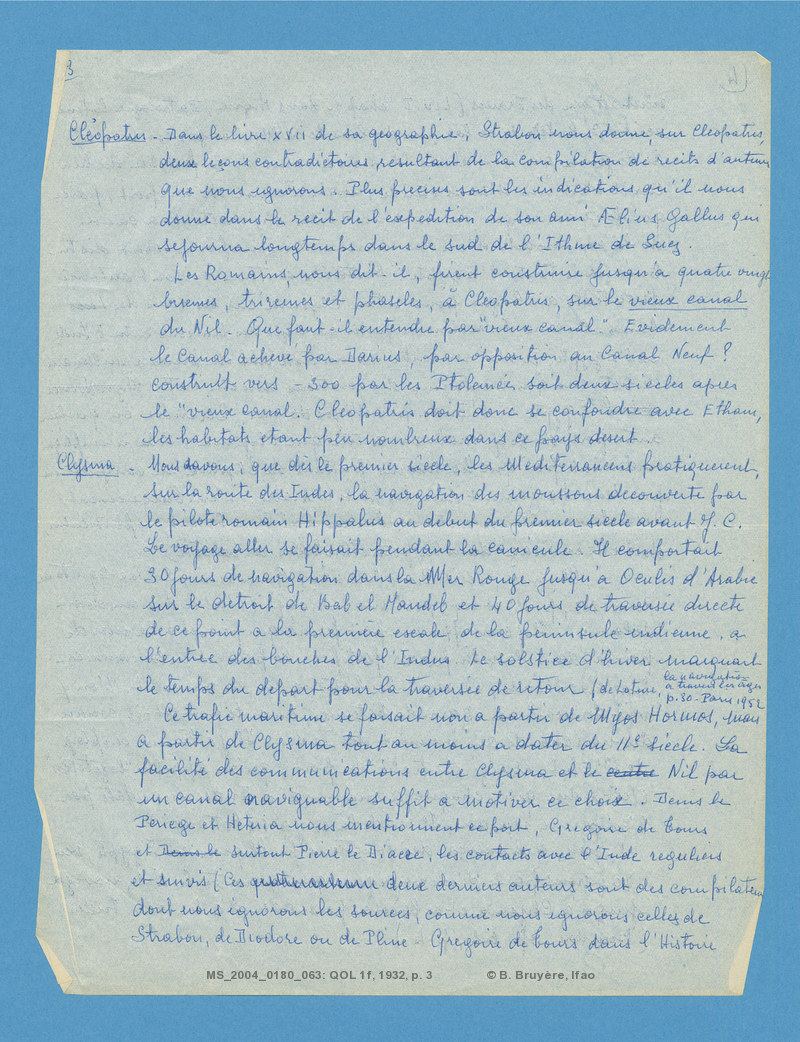 3
(4
Cléopatris - Dans le livre XVII de sa geographie, Strabon nous donne, sur Cleopatris,
deux leçons contradictoires, resultant de la compilation de recits d'auteurs
que nous ignorons. Plus precises sont les indications qu'il nous
donne dans le recit de l'expedition de son ami Ælius Gallus qui
sejourna longtemps dans le sud de l'Isthme de Suez.
Les Romains, nous dit-il, firent construire jusqu'à quatre vingt
biremes, triremes et phaseles, à Cleopatris, sur le vieux canal
du Nil. Que faut-il entendre par "vieux canal". Evidement
le canal achevé par Darius, par opposition au Canal Neuf ?
construit vers -300 par les Ptolemées soit deux siecles apres
le "vieux canal. Cleopatris doit donc se confondre avec Etham,
les habitats etant peu nombreux dans ce pays desert.
Clysma - Nous savons, que dès le premier siecle, les Mediterraneens pratiquerent,
sur la route des Indes, la navigation des moussons decouverte par
le pilote romain Hippalus au debut du premier siecle avant J. C.
Le voyage aller se faisait pendant la canicule. Il comportait
30 jours de navigation dans la Mer Rouge jusqu'a Ocelis d'Arabie
sur le detroit de Bab el Mandeb et 40 jours de traversée directe
de ce point a la première escale, de la peninsule indienne, a
l'entrée des bouches de l'Indus. Le solstice d'hiver marquait
le temps du depart pour la traversée de retour (de Loture, la navigation
a travers les ages
p. 30 - Paris 1952
Ce trafic maritime se faisait non a partir de Myos Hormos, mais
a partir de Clysma tout au moins a dater du IIe siecle. La
facilité des communications entre Clysma et le centre Nil par
un canal naviguable suffit a motiver ce choix. Denis le
Periege et Heteria nous mentionnent ce port, Gregoire de Tours
et Denis le surtout Pierre le Diacre, les contacts avec l'Inde reguliers
et suivis (Ces deux derniers auteurs sont des compilateurs
dont nous ignorons les sources, comme nous ignorons celles de
Strabon, de Diodore ou de Pline - Gregoire de Tours dans l'Histoire
MS_2004_0180_063: QOL 1f, 1932, p. 3 © B. Bruyère, Ifao